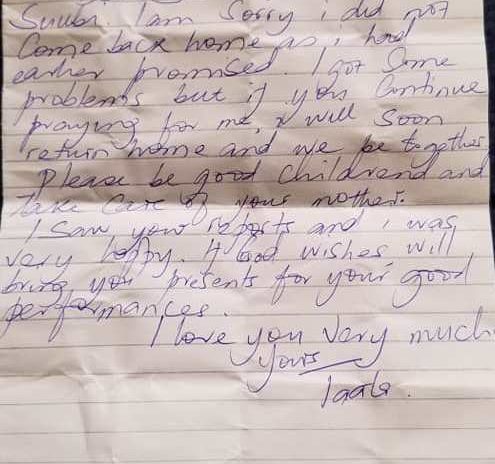 Suubi. I am Sorry i did not
Come back home as i had
earlier promised. I got Some
problems but if you Continue
praying for me, I will Soon
return home and we be together
Please be good Childrend and
Take Care of your mother.
I Saw your reports and i was
very happy. If God wishes, will
bring you presents for your good
performances.
I love you Very much
yours